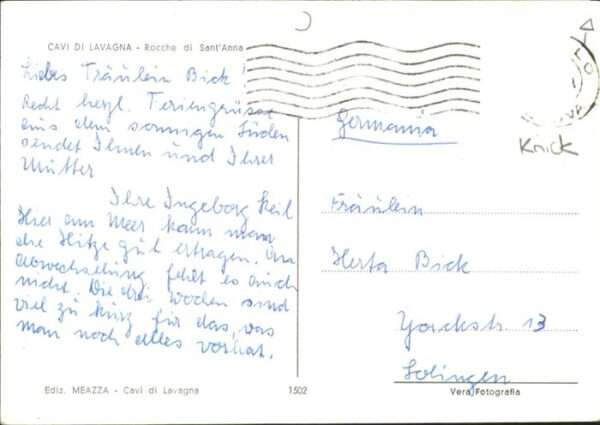 CAVI DI LAVAGNA - Rocche di Sant'Anna
Liebes Fräulein Bick!
Recht herzl. Feriengrüsse
aus dem sonnigen Süden
sendet Ihnen und Ihrer
Mutter
Ihre Ingeborg Keil
Hier am Meer kann man
die Hitze gut ertragen. An
Abwechslung fehlt es auch
nicht. Die drei Wochen sind
viel zu kurz für das, was
man noch alles vorhat.
Germania
Knick
Fräulein
Herta Bick
Yorckstr. 13
Solingen
Ediz. MEAZZA - Cavi di Lavagna
1502
Vera Fotografia